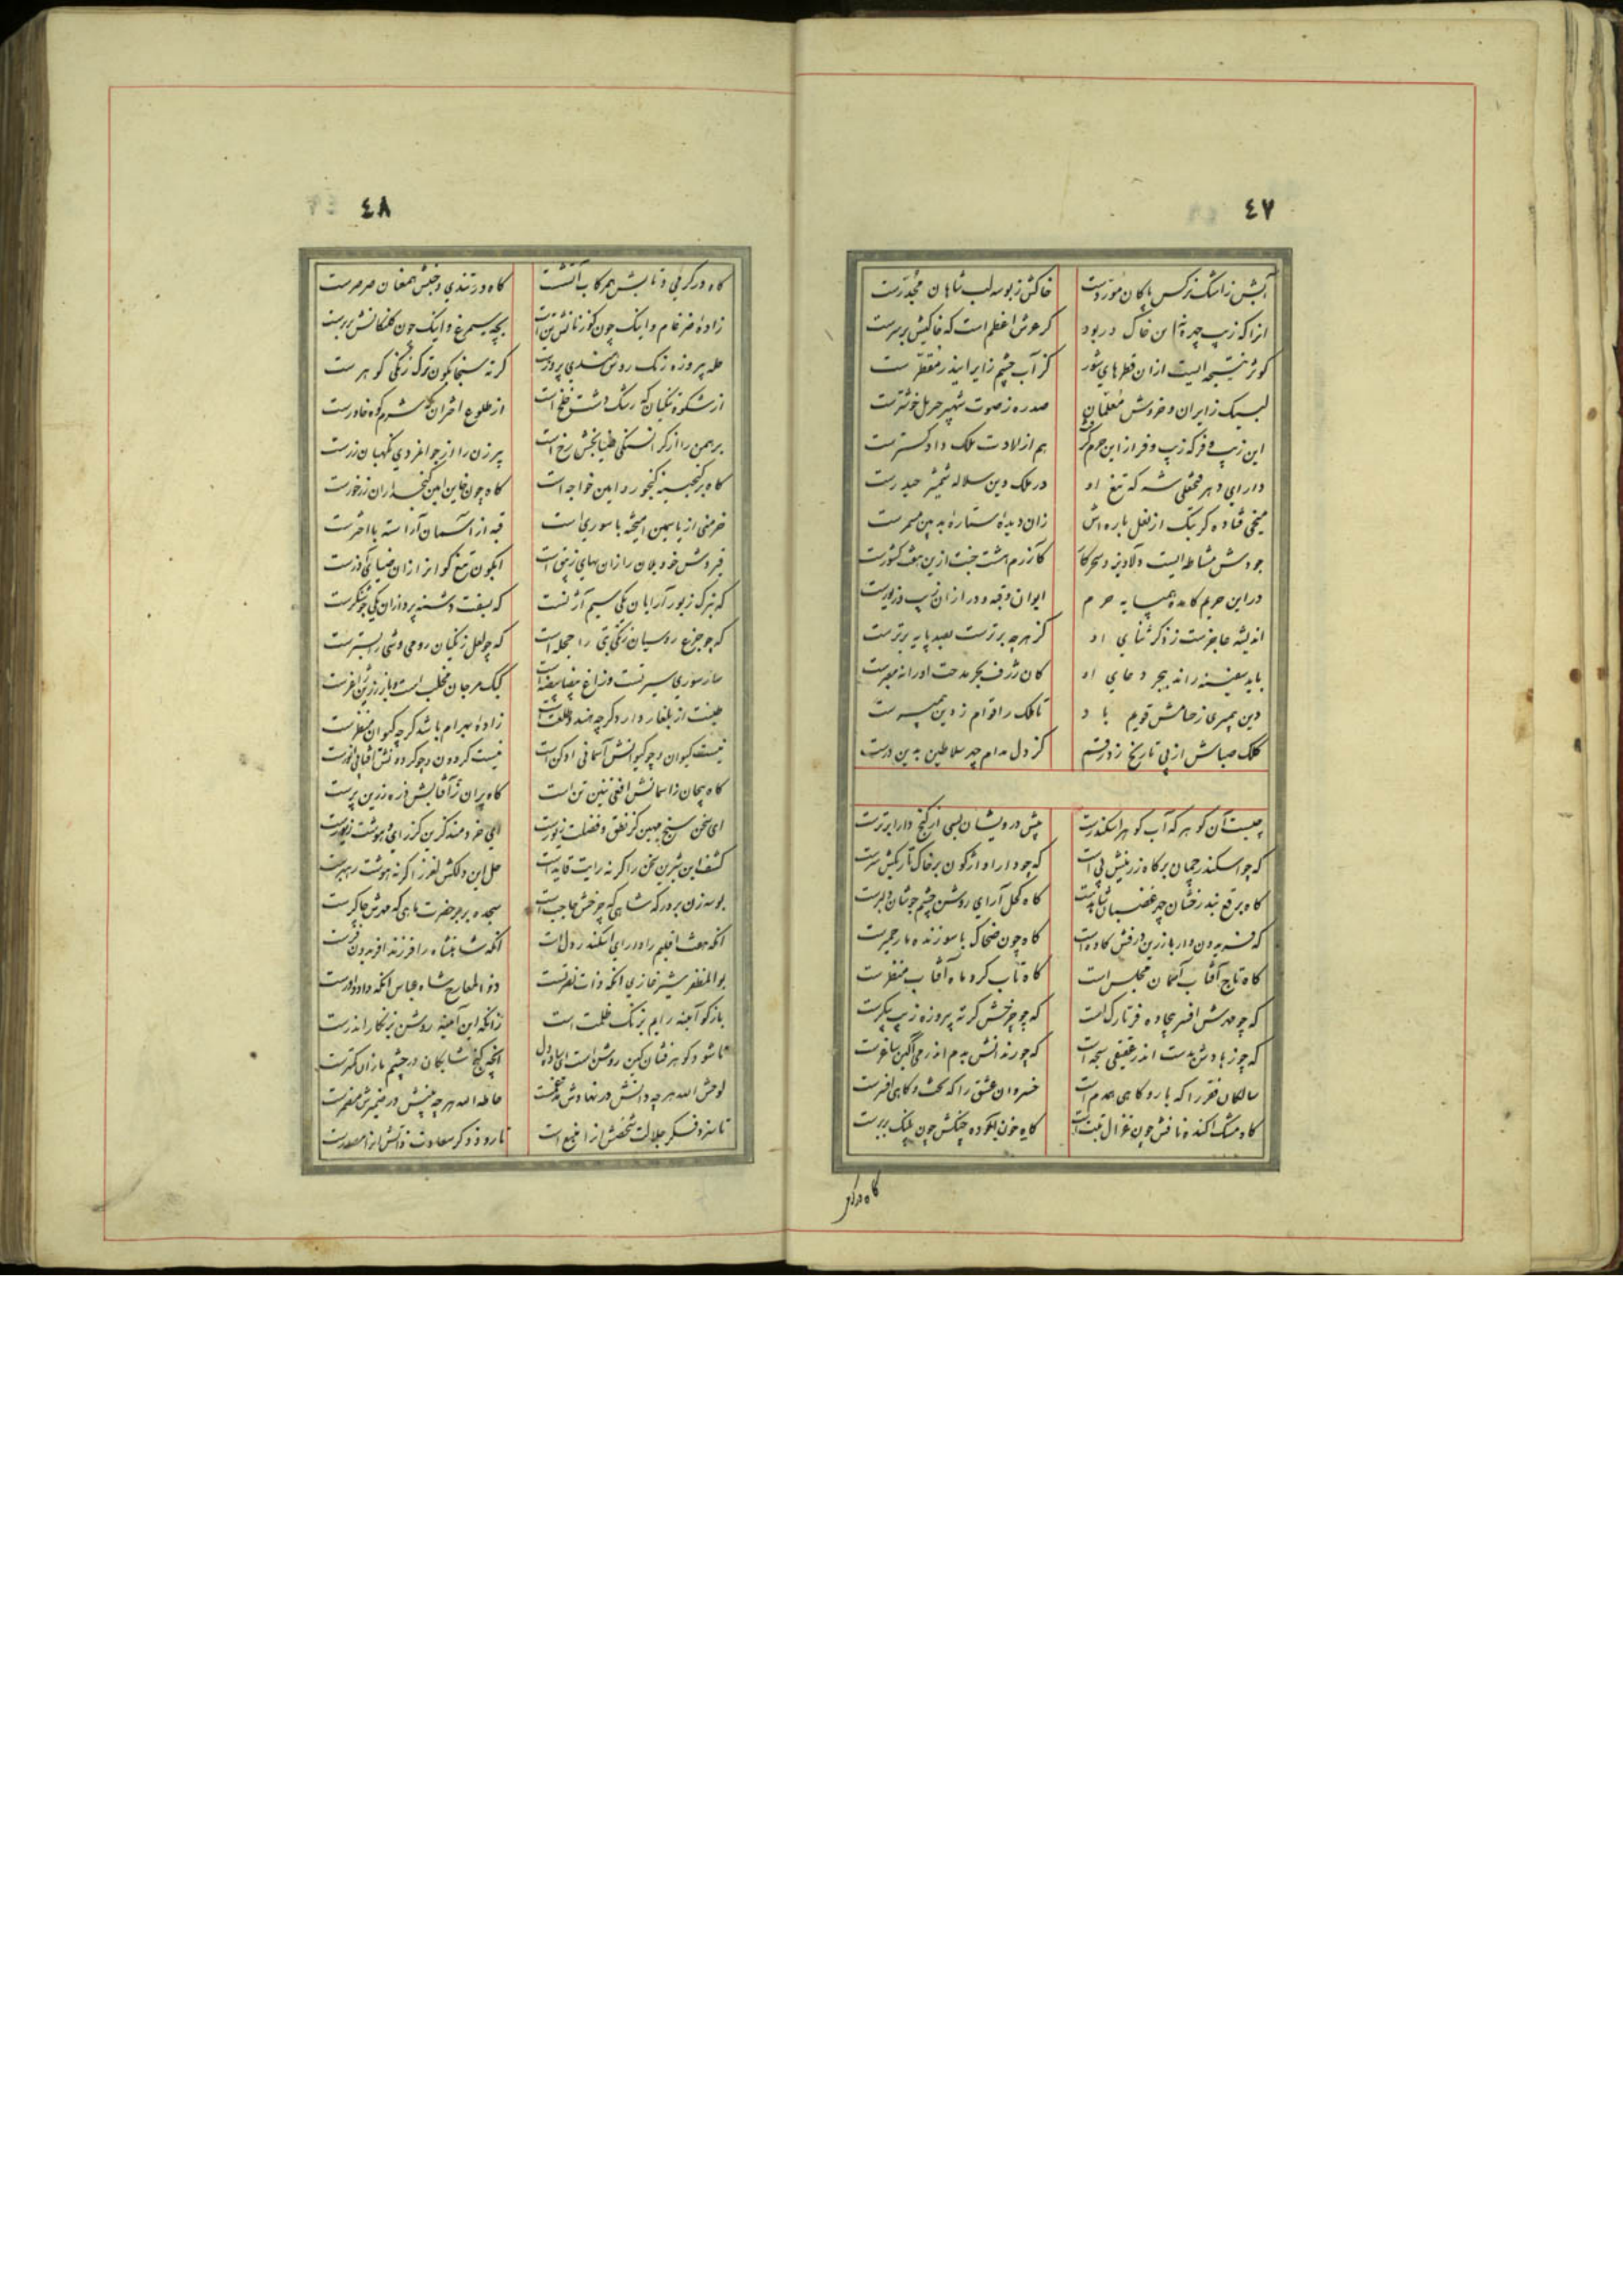 ٤٧
آبش ز اشک نرکس پاکان مورّدست خاکش ز بوسه لب شاهان مجدّرست
انرا که زیب چهره این خاک در بود کر عرش اعظم است که خاکیش بر سرست
کوثر نتیجه ایست ازان قطرهای شور کز آب چشم زایر اینذر مقطّرست
لبیک زایران و خروش معلمان صدره ز صوت شهپر جبریل خوشترست
این زیب و فر که زیب و فر از این حرم هم از لادت ملک داد کسترست
دارای دهر فتحعلی شه که تیغ او در ملک دین سلاله شمشیر حیدرست
میخی فتاده کر بتک از نعل باره اش زان دیدهٔ ستاره بدین مسمرست
جودش مشاطه ایست دلاویز و سحرکار کآزرم هشت جنت ازین هفت کشورست
در این حرم کامده همپایه حرم ایوان و قبه و در ازان زیب و زیورست
اندیشه عاجزست ز ذکر ثنای او کز هرچه برترست بصد پایه برترست
باید سفینه راند ببحر دعای او کان ژرف بحر مدحت او را نه معبرست
دین پیمبری ز حسامش قویم باد تا ملک را قوام ز دین پیمبرست
کلک صباش از پی تاریخ زد رقم کز دل مدام چهر سلاطین بدین درست
چیست آن کوهر که آب کوهر اسکندرست پیش درویشان بسی از کنج دارا برترست
که چو اسکندر چمان بر کاه زرینش پی است که چو دارا واژکون بر خاک تاریکش سرست
کاه برقع بند رخشان چهر غضبان شاهدست کاه کحل آرای روشن چشم جوشان دلبرست
که فریدون وار با زرین درفش کاوه است کاه چون ضحاک با سوزنده مار حمیرست
کاه تاج آفتاب آسمان مجلس است کاه تاب کرد ماه آفتاب منظرست
که چو مهرش افسر بیجاده فر تارک است که چو چرخش کرته پیروزه زیب پیکرست
که چو زهادش بدست اندر عقیقی سبحه است که چو رندانش بدم اندر می آکین ساغرست
سالکان فقر را که یار و کاهی همدم است خسروان عشق را که تخت و کاهی افسرست
کاه مشک آکنده نافش چون غزال تبت است کاه خون آلوده چنکش چون پلنک بربرست
کاه در کر
٤٨
کاه در کرمی و تابش همرکاب آتشست کاه در تندی و جنبش همعنان صرصرست
زادهٔ ضرغام و اینک چون کوزنانش تن است بچه سیمرغ و اینک چون کلنکانش پرست
حله پیروزه رنک روش هندی پرورست کرته سنجابکون ترک زنکی کوهرست
از شکوه زنکیان که رشک دشت خلخ است از طلوع اختران که شرم کوه خاورست
برهمن را از کرانسنکی طنابخش رخ است پیرزن را از جوانمردی نکهبان زرست
کاه بر کنجینه کنجور و امین خواجه است کاه چون خاین امین کنجداران زرخورست
خرمنی از یاسمین آمیخته با سوری است قبه از آسمان آراسته با اخترست
قیروش خود یلان را زان بهای زینتی است آبکون تیغ کوان را زان ضیای آذرست
که بترک زیور آرایان یکی سیم آژنست که بسفت دشنه پردازان یکی جوشنکرست
که چو جزع روسیان زنکی بتی را حجله است که چو لعل زنکیان رومی وشی را بسترست
مار سوری سیرتست و زاغ بیضا بیضه است کبک مرجان مخلب است و باز زرین ساغرست
طینت از بلغار دارد کرچه هند و طلعت است زادهٔ بهرام باشد کرچه کیوان منظرست
نیست کیوان و چو کیوانش آسمانی ادکن است نیست کردون و چو کردونش آفتابی انورست
کاه پیچان ز آسمانش افعی تنین تن است کاه پران ز آفتابش ذره زرین پرست
ای سخن سنج مهین کز نطق و فضلت زیورست ای خردمند کزین کز رای و هوشت زیورست
کشف این شیرین سخن را کر نه رایت قایدست حل این دلکش لغز را کر نه هوشت رهبرست
بوسه زن بر درکه شاهی که چرخش حاجب است سجده بر بر حضرت ماهی که مهرش چاکرست
آنکه هفت اقلیم را دارای اسکندر دل است آنکه شاهنشاه را فرزند افریدون فرست
بوالمظفر شیر غازی آنکه ذات نصرتست ذوالمعارج شاه عباس آنکه داد داورست
باز کو آیینه رایم بزنک ظلمت است زانکه این آیینه روشن بزنکار اندرست
تا شود کوهرفشان کین روشن است ای ساده دل آنچه کنج شایکان در چشم ما زان کمترست
لوحش الله هرچه دانش در نهادش مدغمست حاطه الله هرچه بینش در ضمیرش مضمرست
تا سزد فکر جلالت شخصش آنرا منبع است تا رود ذکر سعادت ذاتش آنرا مصدرست